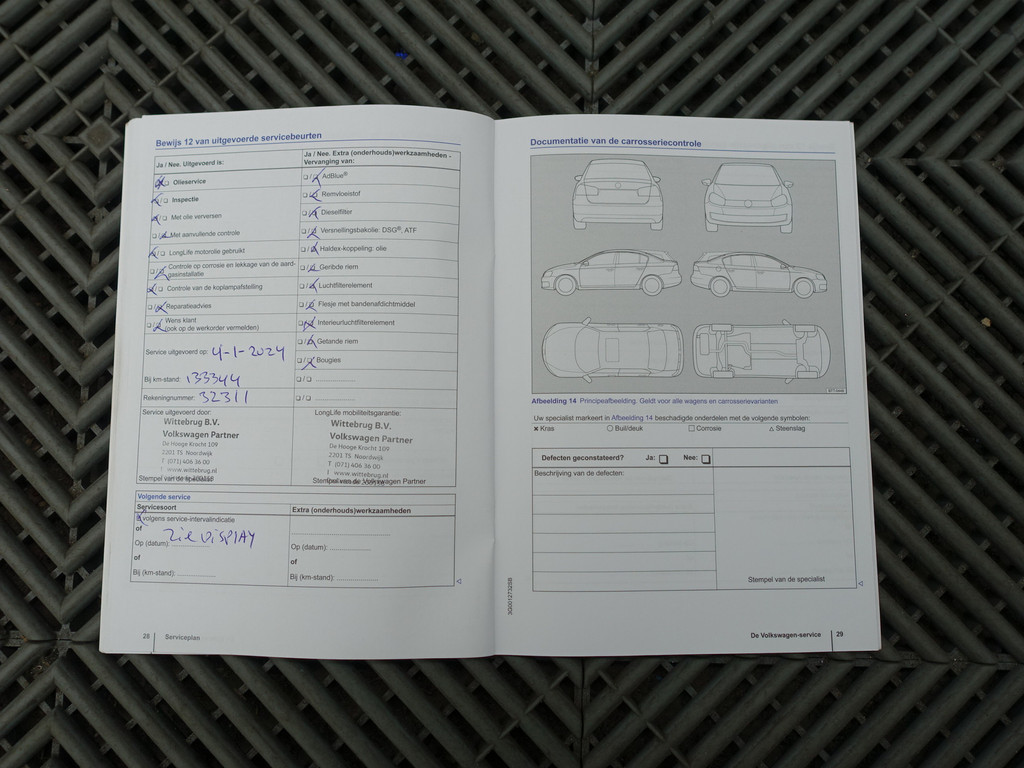 Bewijs 12 van uitgevoerde servicebeurten
Ja / Nee. Uitgevoerd is:
Olieservice
Inspectie
Met olie verversen
Met aanvullende controle
LongLife motorolie gebruikt
Controle op corrosie en lekkage van de aard-
gasinstallatie
Controle van de koplampafstelling
Reparatieadvies
Wens klant
(ook op de werkorder vermelden)
Ja / Nee. Extra (onderhouds)werkzaamheden -
Vervanging van:
AdBlue®
Remvloeistof
Dieselfilter
Versnellingsbakolie: DSG®, ATF
Haldex-koppeling: olie
Geribde riem
Luchtfilterelement
Flesje met bandenafdichtmiddel
Interieurluchtfilterelement
Getande riem
Bougies
Service uitgevoerd op: 4-1-2024
Bij km-stand: 133344
Rekeningnummer: 32311
Service uitgevoerd door:
Wittebrug B.V.
Volkswagen Partner
De Hooge Krocht 109
2201 TS Noordwijk
T (071) 406 36 00
www.wittebrug.nl
Stempel van de specialist
LongLife mobiliteitsgarantie:
Wittebrug B.V.
Volkswagen Partner
De Hooge Krocht 109
2201 TS Noordwijk
T (071) 406 36 00
www.wittebrug.nl
Stempel van de Volkswagen Partner
Volgende service
Servicesoort
volgens service-intervalindicatie
of
Op (datum): zie DISPLAY
of
Bij (km-stand): ..............
Extra (onderhouds)werkzaamheden
Op (datum): ..............
of
Bij (km-stand): ..............
28 Serviceplan
Documentatie van de carrosseriecontrole
Afbeelding 14 Principeafbeelding: Geldt voor alle wagens en carrosserievarianten
Uw specialist markeert in Afbeelding 14 beschadigde onderdelen met de volgende symbolen:
× Kras ○ Buil/deuk □ Corrosie △ Steenslag
Defecten geconstateerd? Ja: Nee:
Beschrijving van de defecten:
Stempel van de specialist
3G0012732SB
De Volkswagen-service 29